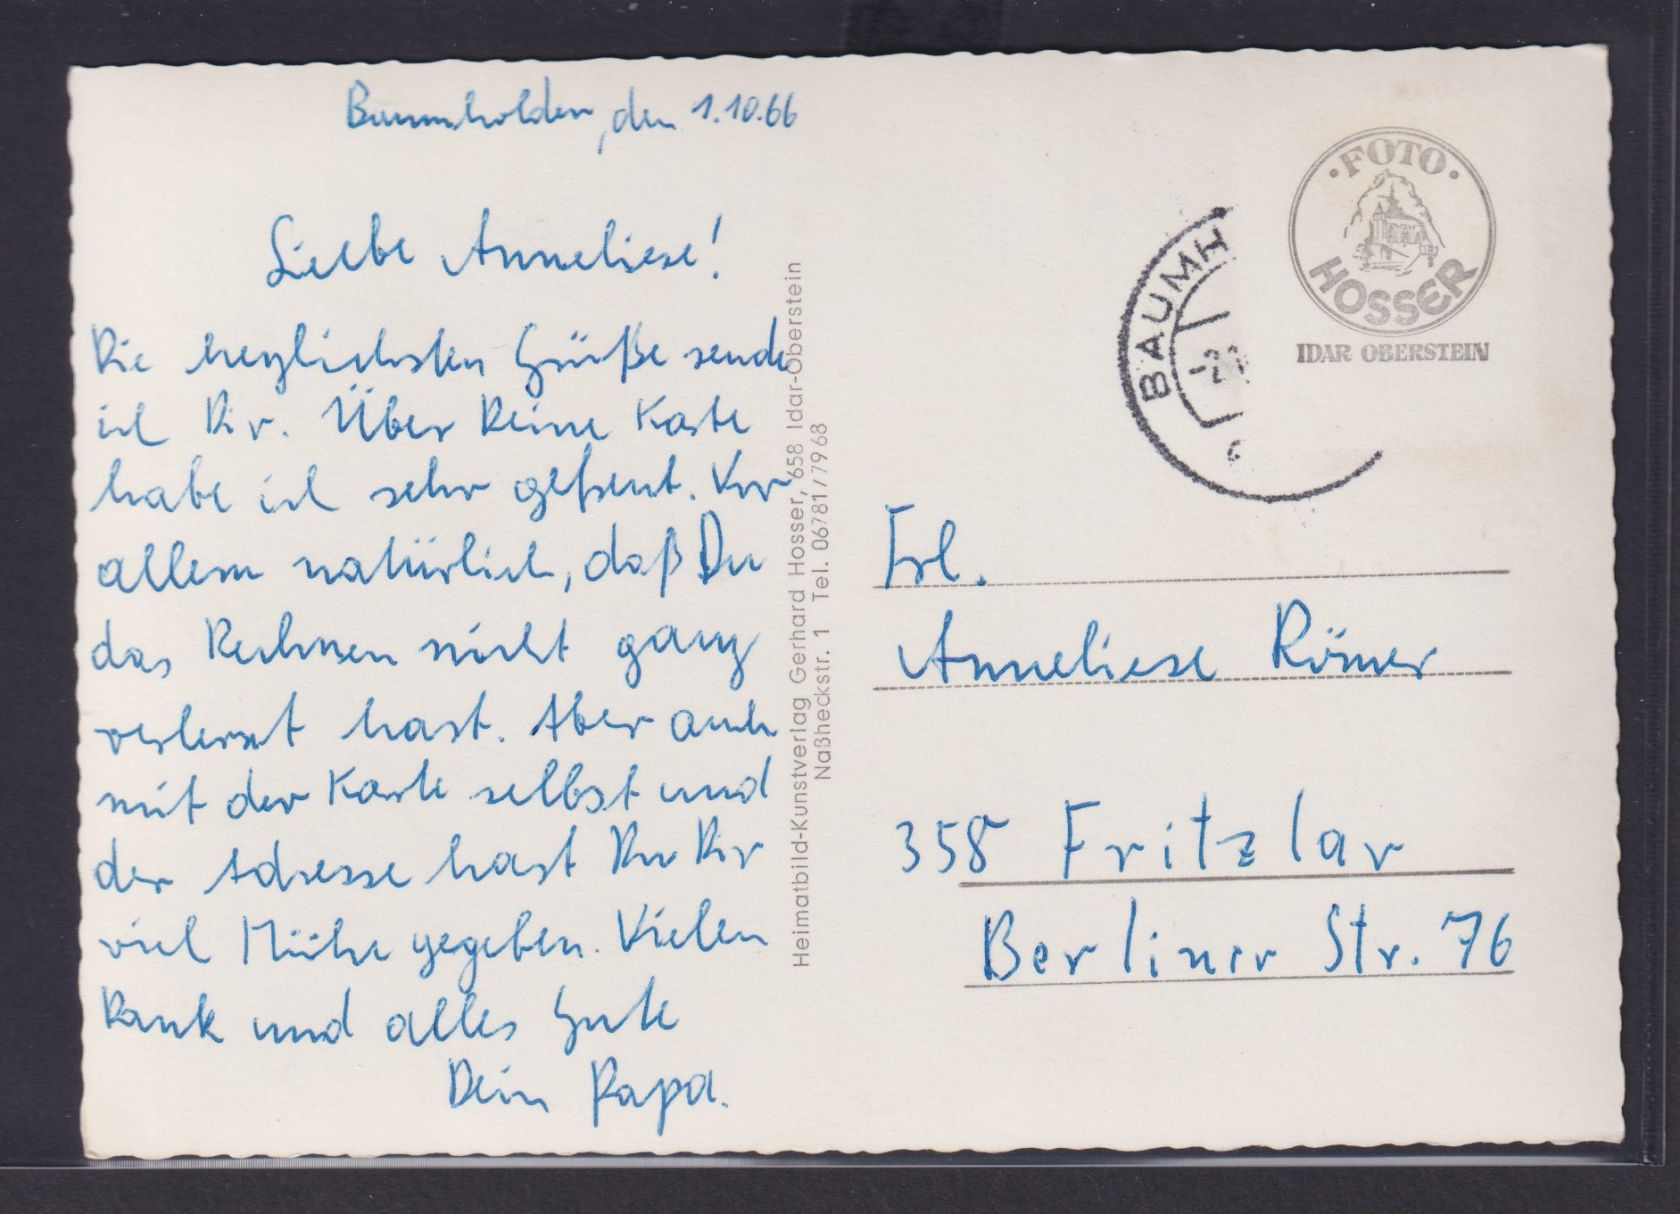 Baumholder, den 1.10.66
Liebe Anneliese!
Die herzlichsten Grüße sende
ich Dir. Über Deine Karte
habe ich mich sehr gefreut. Vor
allem natürlich, daß Du
das Rechnen nicht ganz
verlernt hast. Aber auch
mit der Karte selbst und
der Adresse hast Du Dir
viel Mühe gegeben. Vielen
Dank und alles Gute
Dein Papa.
Heimatbild-Kunstverlag Gerhard Hosser, 658 Idar-Oberstein
Naßheckstr. 1 Tel. 06781/7968
BAUMH
-2.
·FOTO·
HOSSER
IDAR OBERSTEIN
Frl.
Anneliese Römer
358 Fritzlar
Berliner Str. 76